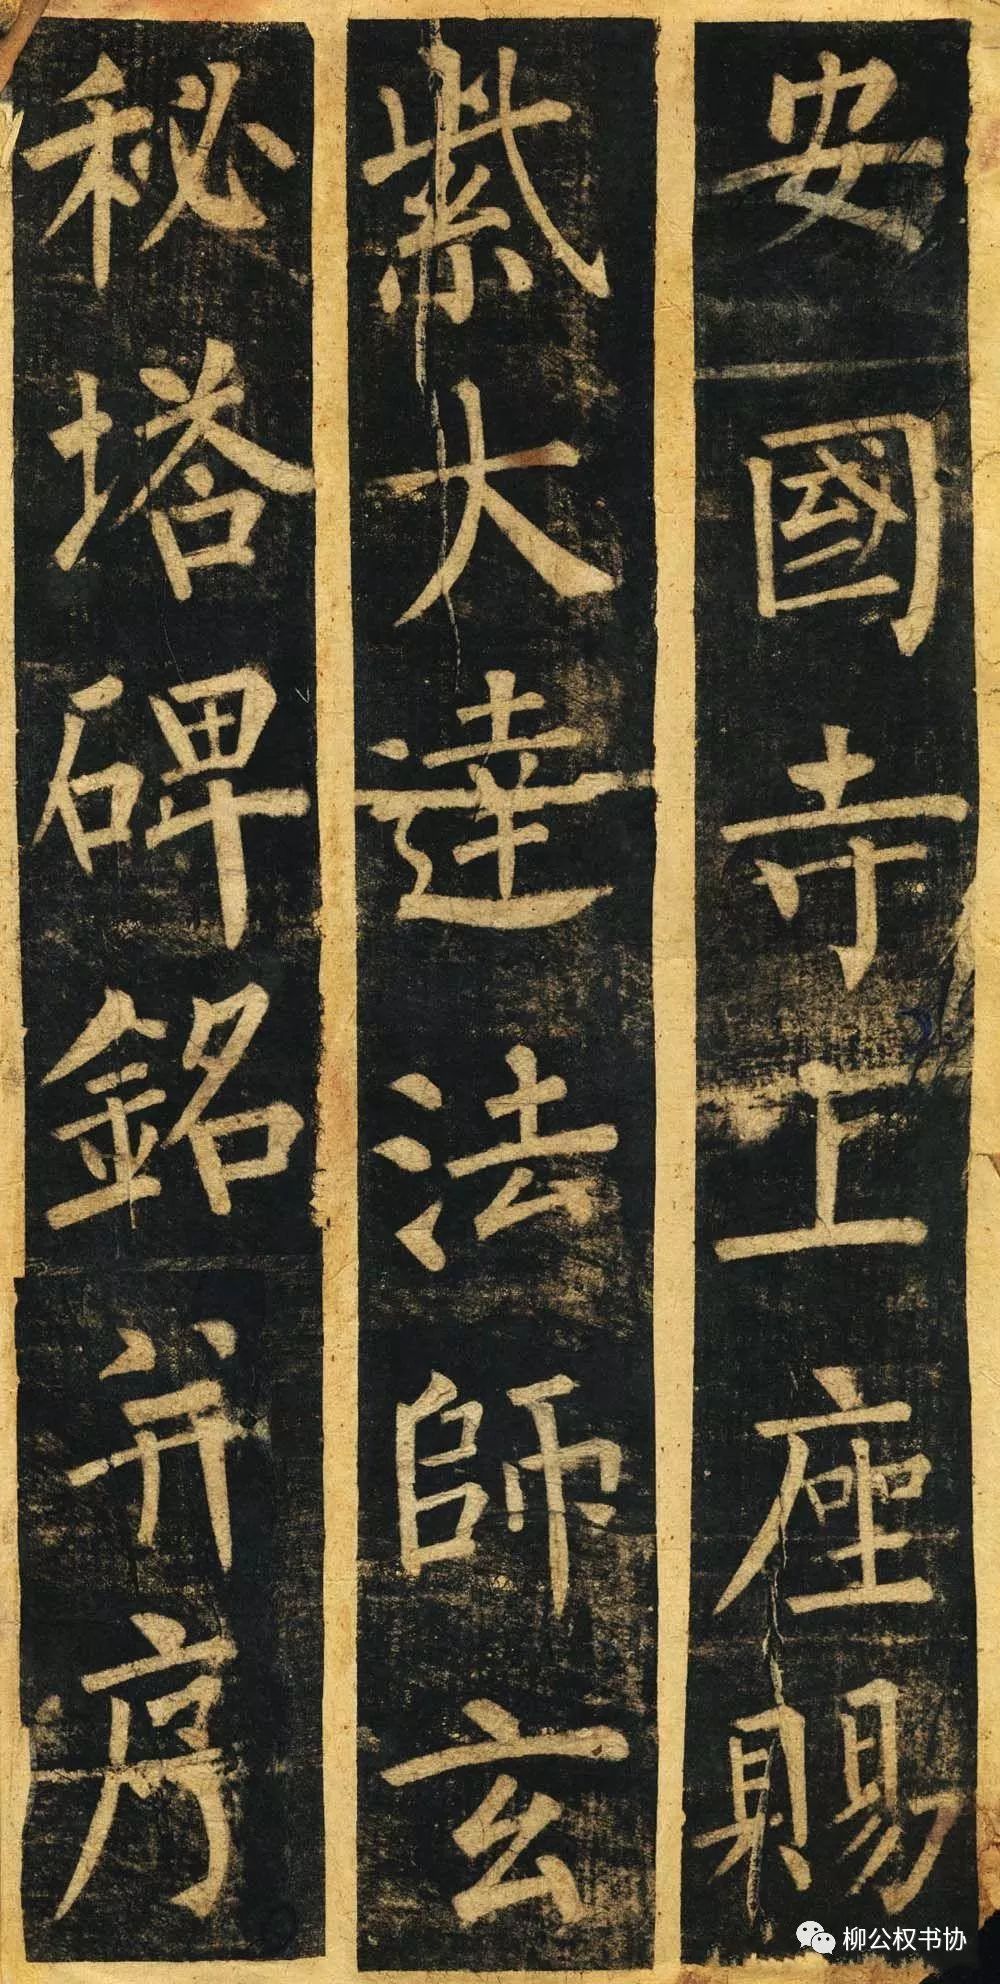 安國寺上座賜
紫大達法師玄
秘塔碑銘并序
柳公权书协